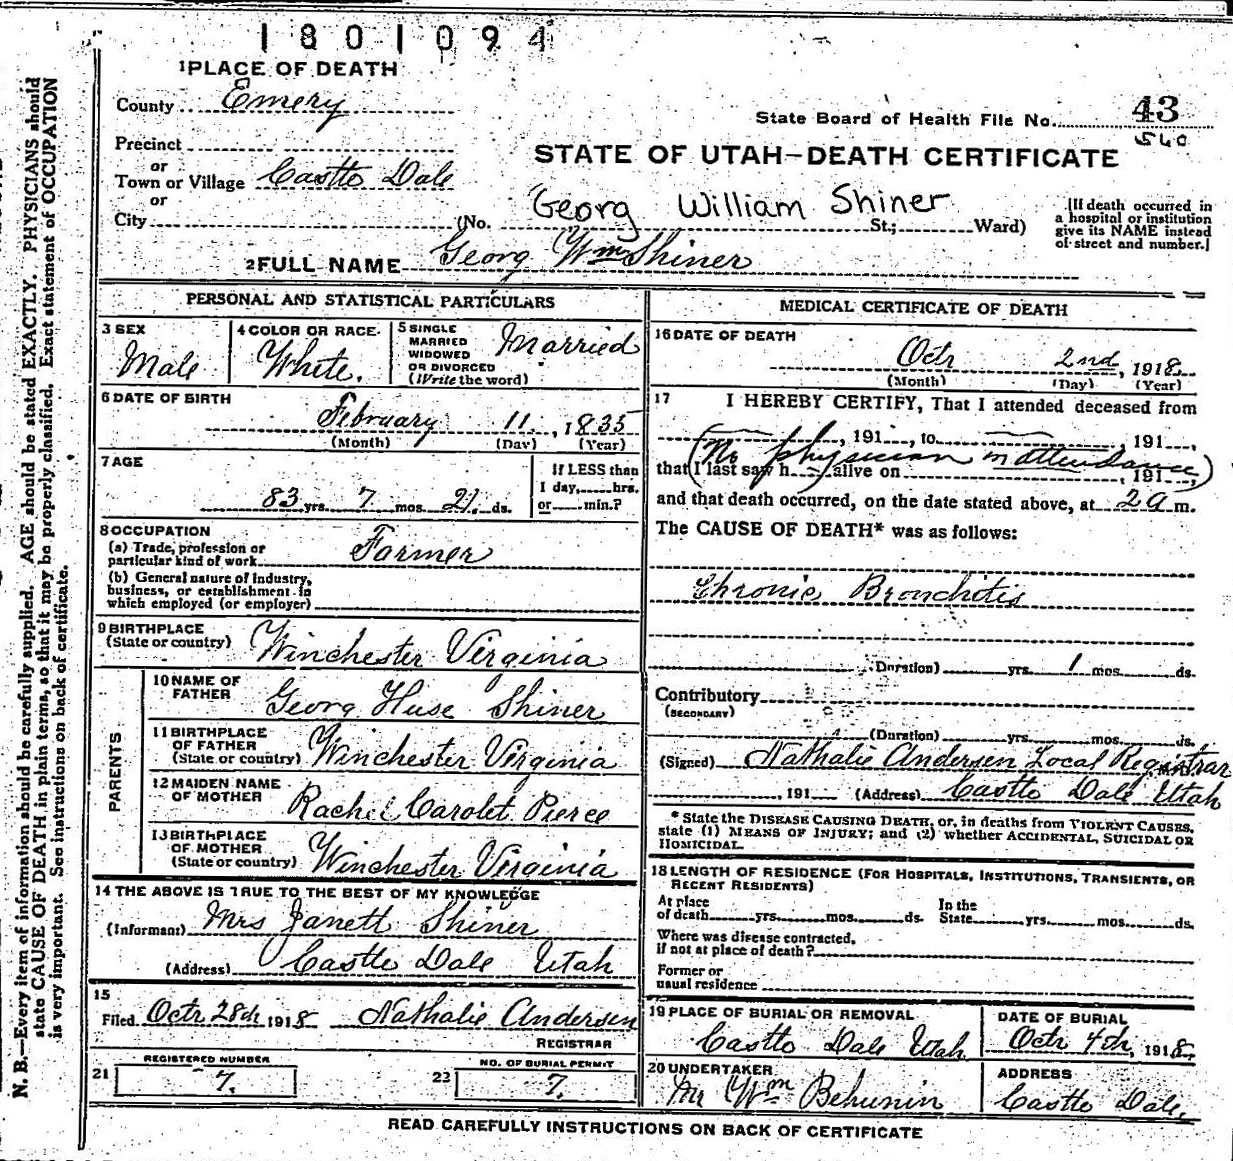 1801094
1 PLACE OF DEATH
County Emery
State Board of Health File No. 43
560
Precinct
or
Town or Village Castto Dale
or
City
STATE OF UTAH—DEATH CERTIFICATE
Georg William Shiner
(No. St.; Ward)
[If death occurred in
a hospital or institution
give its NAME instead
of street and number.]
2 FULL NAME Georg Wm Shiner
PERSONAL AND STATISTICAL PARTICULARS
3 SEX
Male
4 COLOR OR RACE
White.
5 SINGLE
MARRIED
WIDOWED
OR DIVORCED
(Write the word)
Married
6 DATE OF BIRTH
February 11, 1835
(Month) (Day) (Year)
7 AGE
83 yrs. 7 mos. 21. ds.
If LESS than
1 day, hrs.
or min.?
8 OCCUPATION
(a) Trade, profession or
particular kind of work Farmer
(b) General nature of industry,
business, or establishment in
which employed (or employer)
9 BIRTHPLACE
(State or country) Winchester Virginia
PARENTS
10 NAME OF
FATHER Georg Huse Shiner
11 BIRTHPLACE
OF FATHER
(State or country) Winchester Virginia
12 MAIDEN NAME
OF MOTHER Rachel Carolet Pierce
13 BIRTHPLACE
OF MOTHER
(State or country) Winchester Virginia
14 THE ABOVE IS TRUE TO THE BEST OF MY KNOWLEDGE
(Informant) Mrs Janett Shiner
(Address) Castto Dale Utah
15
Filed Octr 28th 1918 Nathalie Andersen
REGISTRAR
21 REGISTERED NUMBER
7.
22 NO. OF BURIAL PERMIT
7.
MEDICAL CERTIFICATE OF DEATH
16 DATE OF DEATH
Octr 2nd, 1918
(Month) (Day) (Year)
17 I HEREBY CERTIFY, That I attended deceased from
, 191 , to , 191 ,
(No physician in attendance)
that I last saw h alive on , 191 ,
and that death occurred, on the date stated above, at 2 a m.
The CAUSE OF DEATH* was as follows:
Chronic Bronchitis
(Duration) yrs. 1 mos. ds.
Contributory
(SECONDARY)
(Duration) yrs. mos. ds.
(Signed) Nathalie Andersen Local Registrar
, 191 (Address) Castto Dale Utah
* State the DISEASE CAUSING DEATH, or, in deaths from VIOLENT CAUSES,
state (1) MEANS OF INJURY; and (2) whether ACCIDENTAL, SUICIDAL OR
HOMICIDAL.
18 LENGTH OF RESIDENCE (FOR HOSPITALS, INSTITUTIONS, TRANSIENTS, OR
RECENT RESIDENTS)
At place
of death yrs. mos. ds.
In the
State yrs. mos. ds.
Where was disease contracted,
if not at place of death?
Former or
usual residence
19 PLACE OF BURIAL OR REMOVAL
Castto Dale Utah
DATE OF BURIAL
Octr 4th, 1918
20 UNDERTAKER
Mr Wm Behunin
ADDRESS
Castto Dale.
READ CAREFULLY INSTRUCTIONS ON BACK OF CERTIFICATE
N. B.—Every item of information should be carefully supplied. AGE should be stated EXACTLY. PHYSICIANS should
state CAUSE OF DEATH in plain terms, so that it may be properly classified. Exact statement of OCCUPATION
is very important. See instructions on back of certificate.